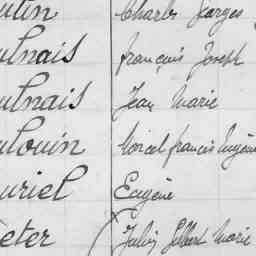 utin Charles Georges
ulnais françois Joseph
ulnais Jean Marie
ulouin Marcel francis Eugène
uriel Eugène
eter Julien Gilbert Marie